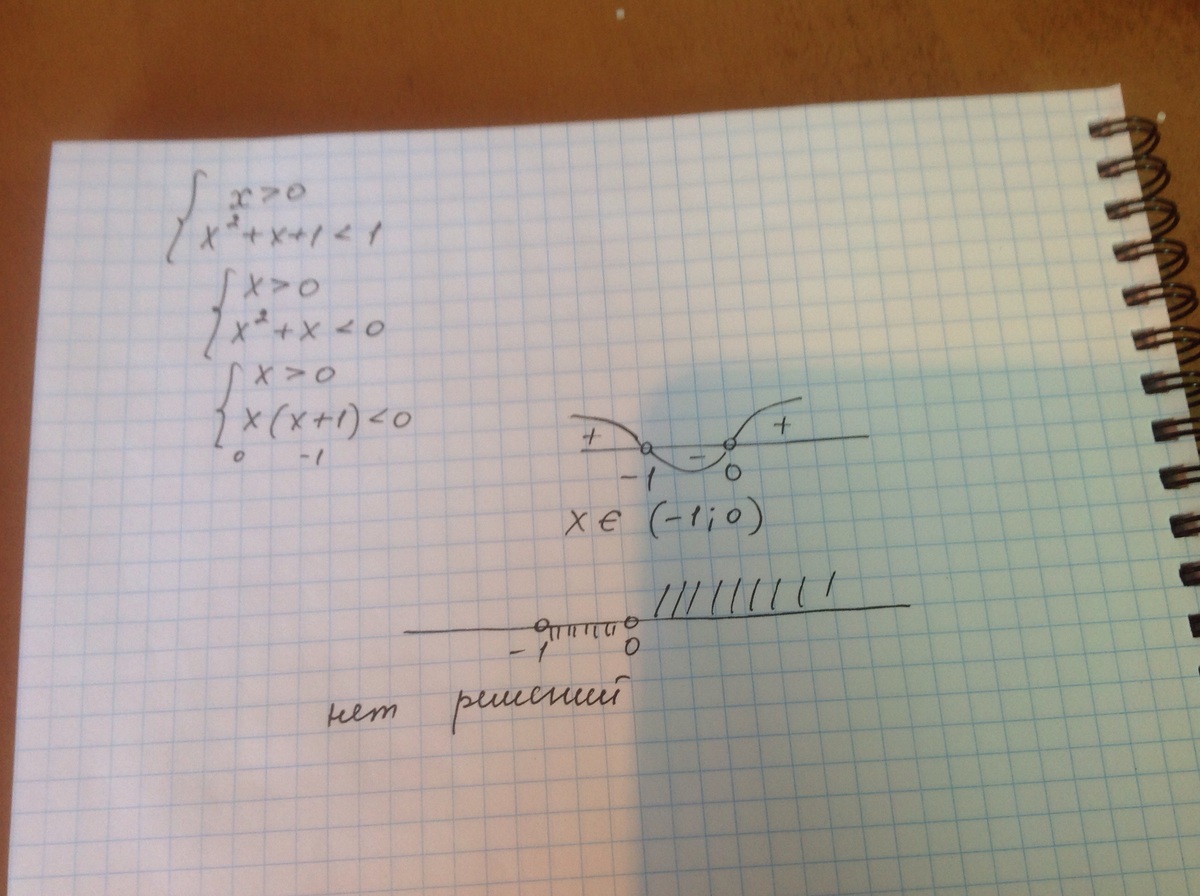 { x > 0
x² + x + 1 < 1
{ x > 0
x² + x < 0
{ x > 0
x(x+1) < 0
0 -1
+ - +
-1 0
x ∈ (-1; 0)
-1 0
нет решений